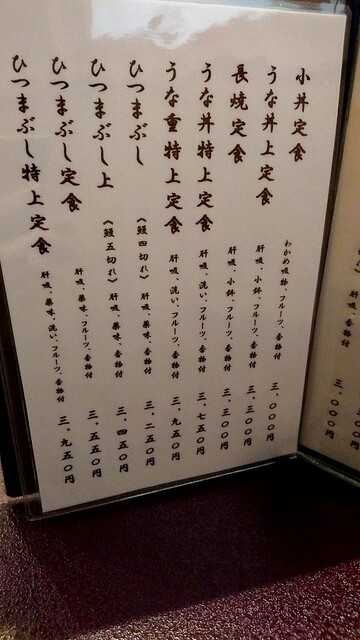 小丼定食 わかめ吸物、フルーツ、香物付 三、〇〇〇円
うな丼上定食 肝吸、小鉢、フルーツ、香物付 三、三〇〇円
長焼定食 肝吸、小鉢、フルーツ、香物付 三、三〇〇円
うな丼特上定食 肝吸、洗い、フルーツ、香物付 三、七五〇円
うな重特上定食 肝吸、洗い、フルーツ、香物付 三、九五〇円
ひつまぶし 《鰻四切れ》 肝吸、薬味、フルーツ、香物付 三、二五〇円
ひつまぶし上 《鰻五切れ》 肝吸、薬味、フルーツ、香物付 三、四五〇円
ひつまぶし定食 肝吸、薬味、フルーツ、香物付 三、五五〇円
ひつまぶし特上定食 肝吸、薬味、洗い、フルーツ、香物付 三、九五〇円